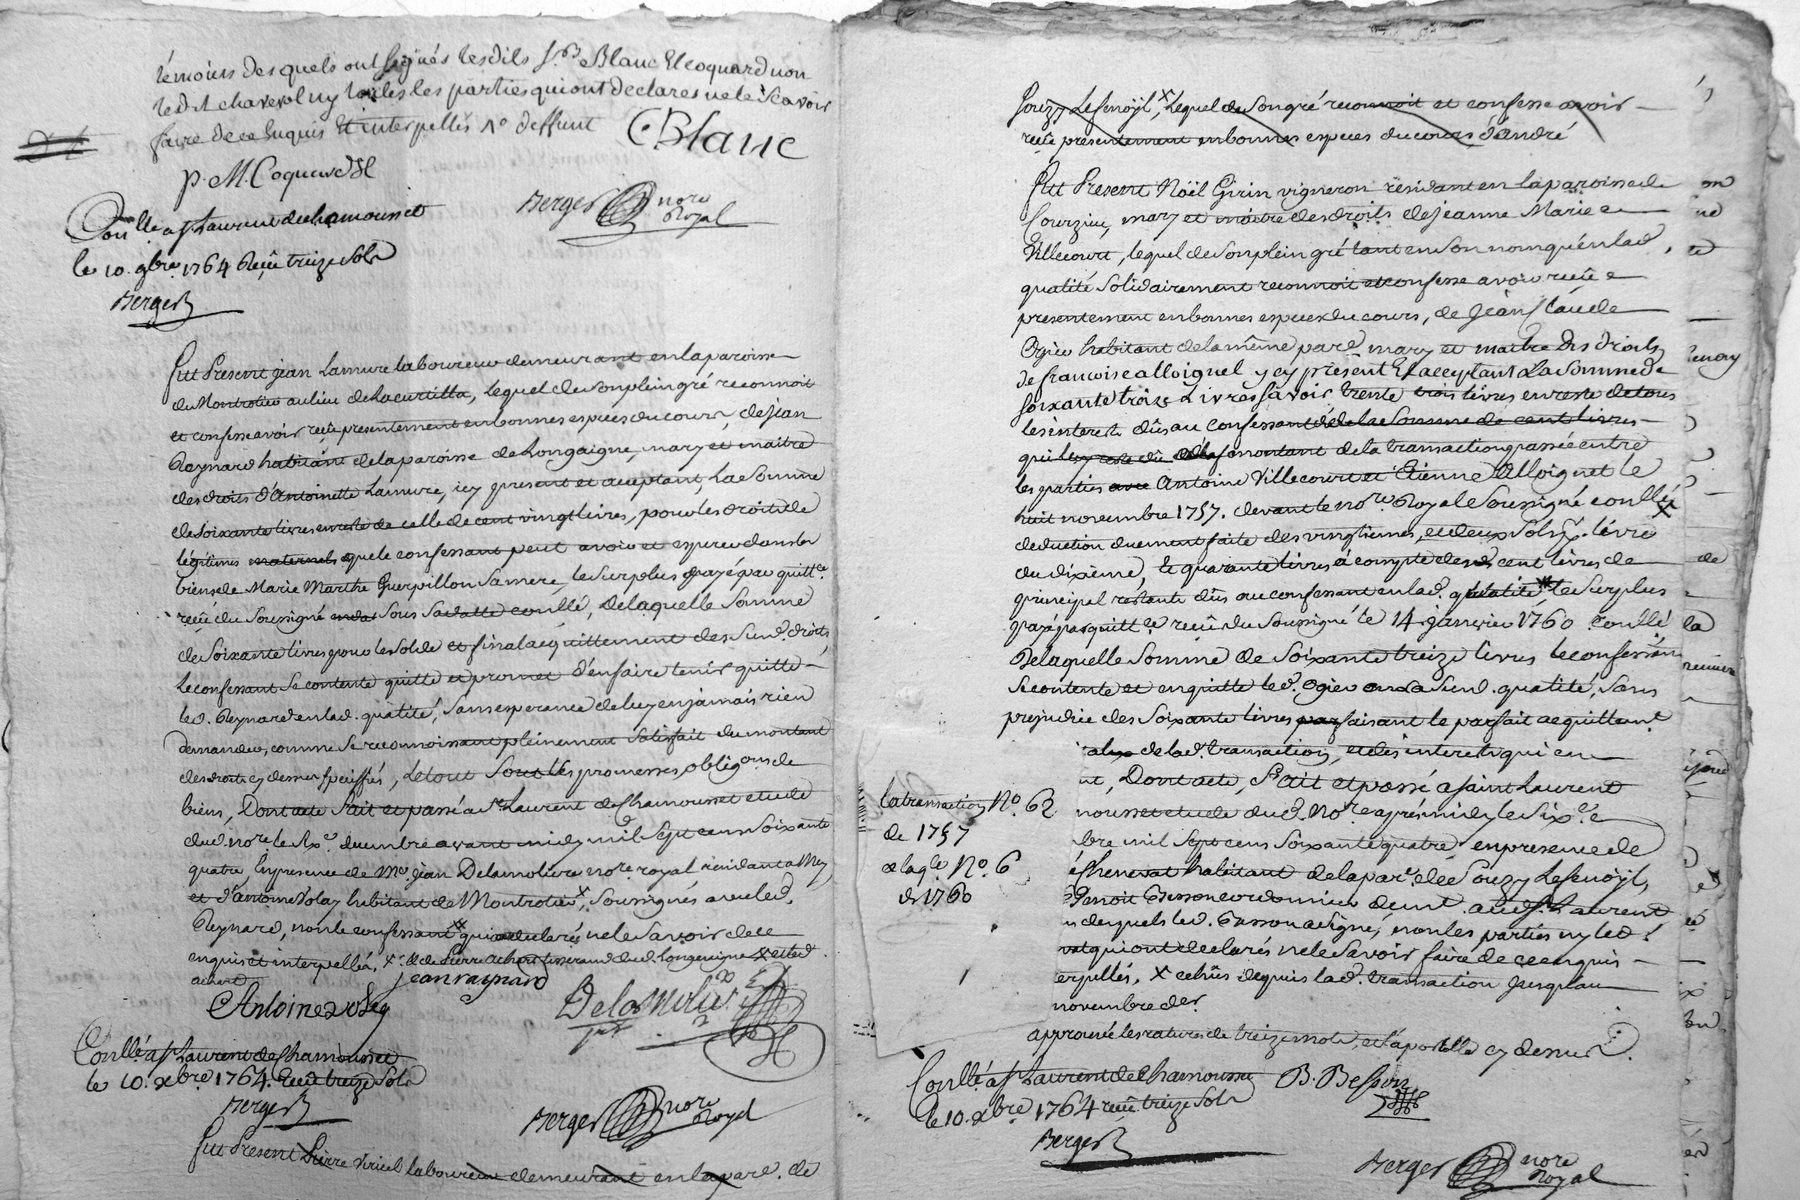 témoins desquels ont signés lesdits Sr. Blanc Et coquard non
led. chavevol ny toutes les parties qui ont declarés ne le sçavoir
faire de ce Enquis Et interpellés
CBlanc
p. M. Coquard
Berger nore Royal
Conllé a St Laurent de chamousset
le 10. 9bre. 1764 Reçû treize Sols
Berger
Fut Present jean Lamure laboureur demeurant en la paroisse
du Montrotier au lieu de Lacurtilla, lequel de son plein gré reconnoit
et confesse avoir reçû presentement en bonnes especes du cours, de jean
Reynard habitant de la paroisse de Longaigne, mary et maitre
des droits d'Antoinette Lamure, icy present et acceptant, La Somme
de Soixante livres en reste de celle de cent vingt livres, pour les droits de
légitimes maternels que le confessant peut avoir et esperer dans les
biens de Marie Marthe Guerpillon Sa mere, le Surplus payé par quittce.
reçû du Soussigné Sous Sa datte conllé, De laquelle Somme
de Soixante livres pour le solde et final acquittement des Susd. droits,
Le confessant Se contente quitte et promet d'en faire tenir quitte
led. Reynard en lad. qualité, Sans esperance de luy en jamais rien
demander, comme Se reconnoissant pleinement Satisfait du montant
des droits cy dessus specifiés, Le tout Sous les promesses, obligons de
biens, Dont acte Fait et passé a St Laurent de Chamousset etude
dud. nore. le dix. decembre avant midy mil Sept cens Soixante
quatre En presence de Me. jean Delamoliere nore royal résidant a Mey,
et d'antoine Volay habitant de Montrotier x, Soussignés avec led.
Reynard, non le confessant qui a declaré ne le Savoir de ce
enquis et interpellé, x. & de Pierre achart tisserand dud. Longeaigne x et led.
achart
jean raynard
Antoine volay
Delamoliere
Conllé a St Laurent de Chamousset
le 10. xbre 1764. Reçû treize Sols
Berger
Berger nore Royal
Fut Present Pierre Viricel laboureur demeurant en la pare. de
Souzy Lesenoÿl, x Lequel de Son gré reconnoit et confesse avoir
reçû presentement en bonnes especes du cours d'andré
Fut Present Noël Girin vigneron résidant en la paroisse de
Sourzieu, mary et maitre des droits de jeanne Marie
Villecourt, lequel de Son plein gré tant en Son nom qu'en lad.
qualité Solidairement reconnoit et confesse avoir reçû
presentement en bonnes especes du cours, de jean Claude
Ogier habitant de la même pare. mary et maitre des droits
de francoise alloignet y cy présent Et acceptant La Somme de
soixante treize Livres savoir trente trois livres en reste de tous
les interets dûs au confessant de la Somme de cent livres
qui montant de la transaction passée entre
les parties avec Antoine Villecourt et Etienne Alloignet le
huit novembre 1757. devant le nore. Royal Soussigné conllé x
deduction duement faite des vingtiemes, et deux Sols p. livre
du dixieme, Et quarante livres à compte desd. cent livres de
principal restante dûs au confessant en lad. qualité le Surplus
payé par quittce. reçû du Soussigné le 14. janvier 1760. Conllé
De laquelle Somme de Soixante treize livres le confessant
Se contente et en quitte led. Ogier en Sa Susd. qualité, Sans
prejudice des Soixante livres faisant le parfait acquittemt.
de lad. transaction, et des interets qui en
nt, Dont acte, Fait et passé a Saint Laurent
mousset etude dud. Nore. après midy le Six. e
bre mil Sept cens Soixante quatre en presence de
chenevat habitant de la pare. de Souzy Lesenoÿl,
Benoit Besson cordonnier demt. aud. St. Laurent
n desquels led. Besson a Signé, non les parties ny led.
vat qui ont declarés ne le Savoir faire de ce enquis
erpellés, x echûs depuis lad. transaction jusqu'au
novembre der.
approuvé les ratures de treize mots, et l'apostille cy dessus.
la transaction No. 62
de 1757
& la qce No. 6
de 1760
Conllé a St Laurent de Chamousset
le 10. xbre. 1764 reçû treize Sols
Berger
B. Besson
Berger nore Royal